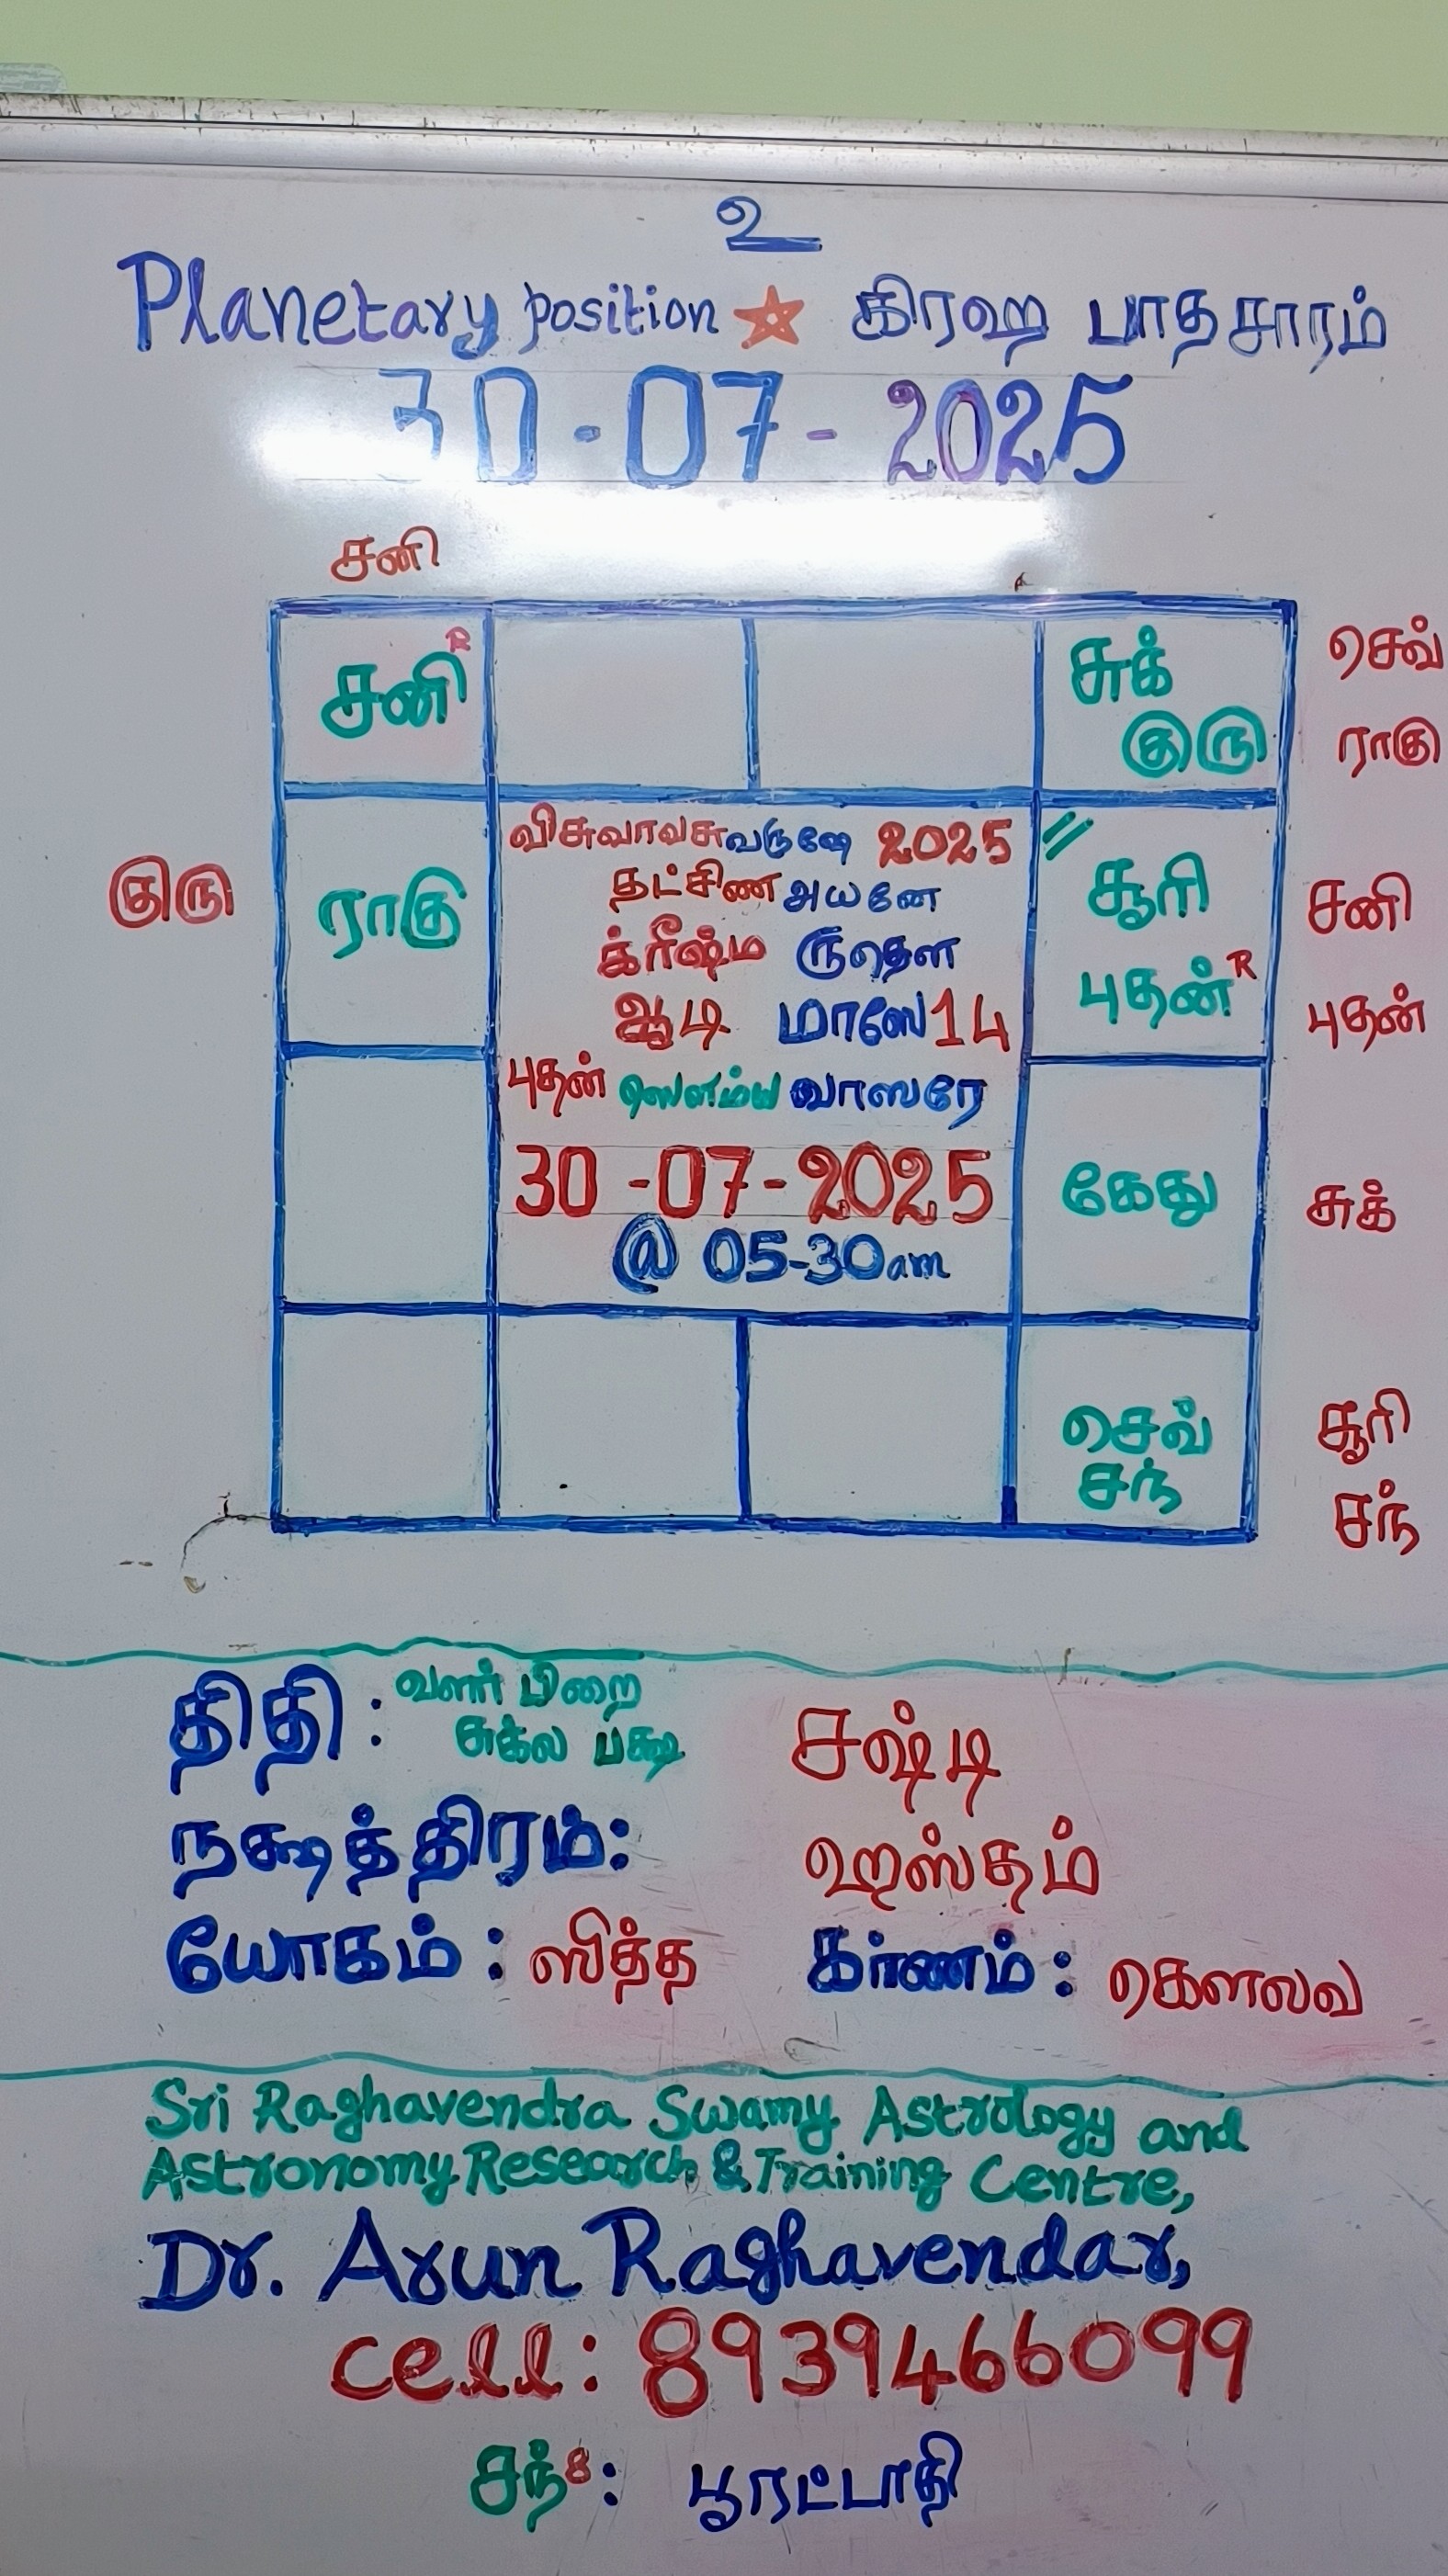 உ
Planetary position ☆ கிரஹ பாதசாரம்
30-07-2025
சனி
சனி R
சுக்
குரு
செவ்
ராகு
குரு
ராகு
விசுவாவசுவருஷே 2025
தட்சிண அயனே
க்ரீஷ்ம ருதௌ
ஆடி மாஸே 14
புதன் ஸௌம்ய வாஸரே
30-07-2025
@ 05-30am
சூரி
புதன் R
சனி
புதன்
கேது
சுக்
செவ்
சந்
சூரி
சந்
திதி : வளர் பிறை
சுக்ல பக்ஷ சஷ்டி
நக்ஷத்திரம்: ஹஸ்தம்
யோகம் : ஸித்த கர்ணம் : கௌலவ
Sri Raghavendra Swamy Astrology and
Astronomy Research & Training Centre,
Dr. Arun Raghavendar,
cell: 8939466099
சந் 8 : பூரட்டாதி